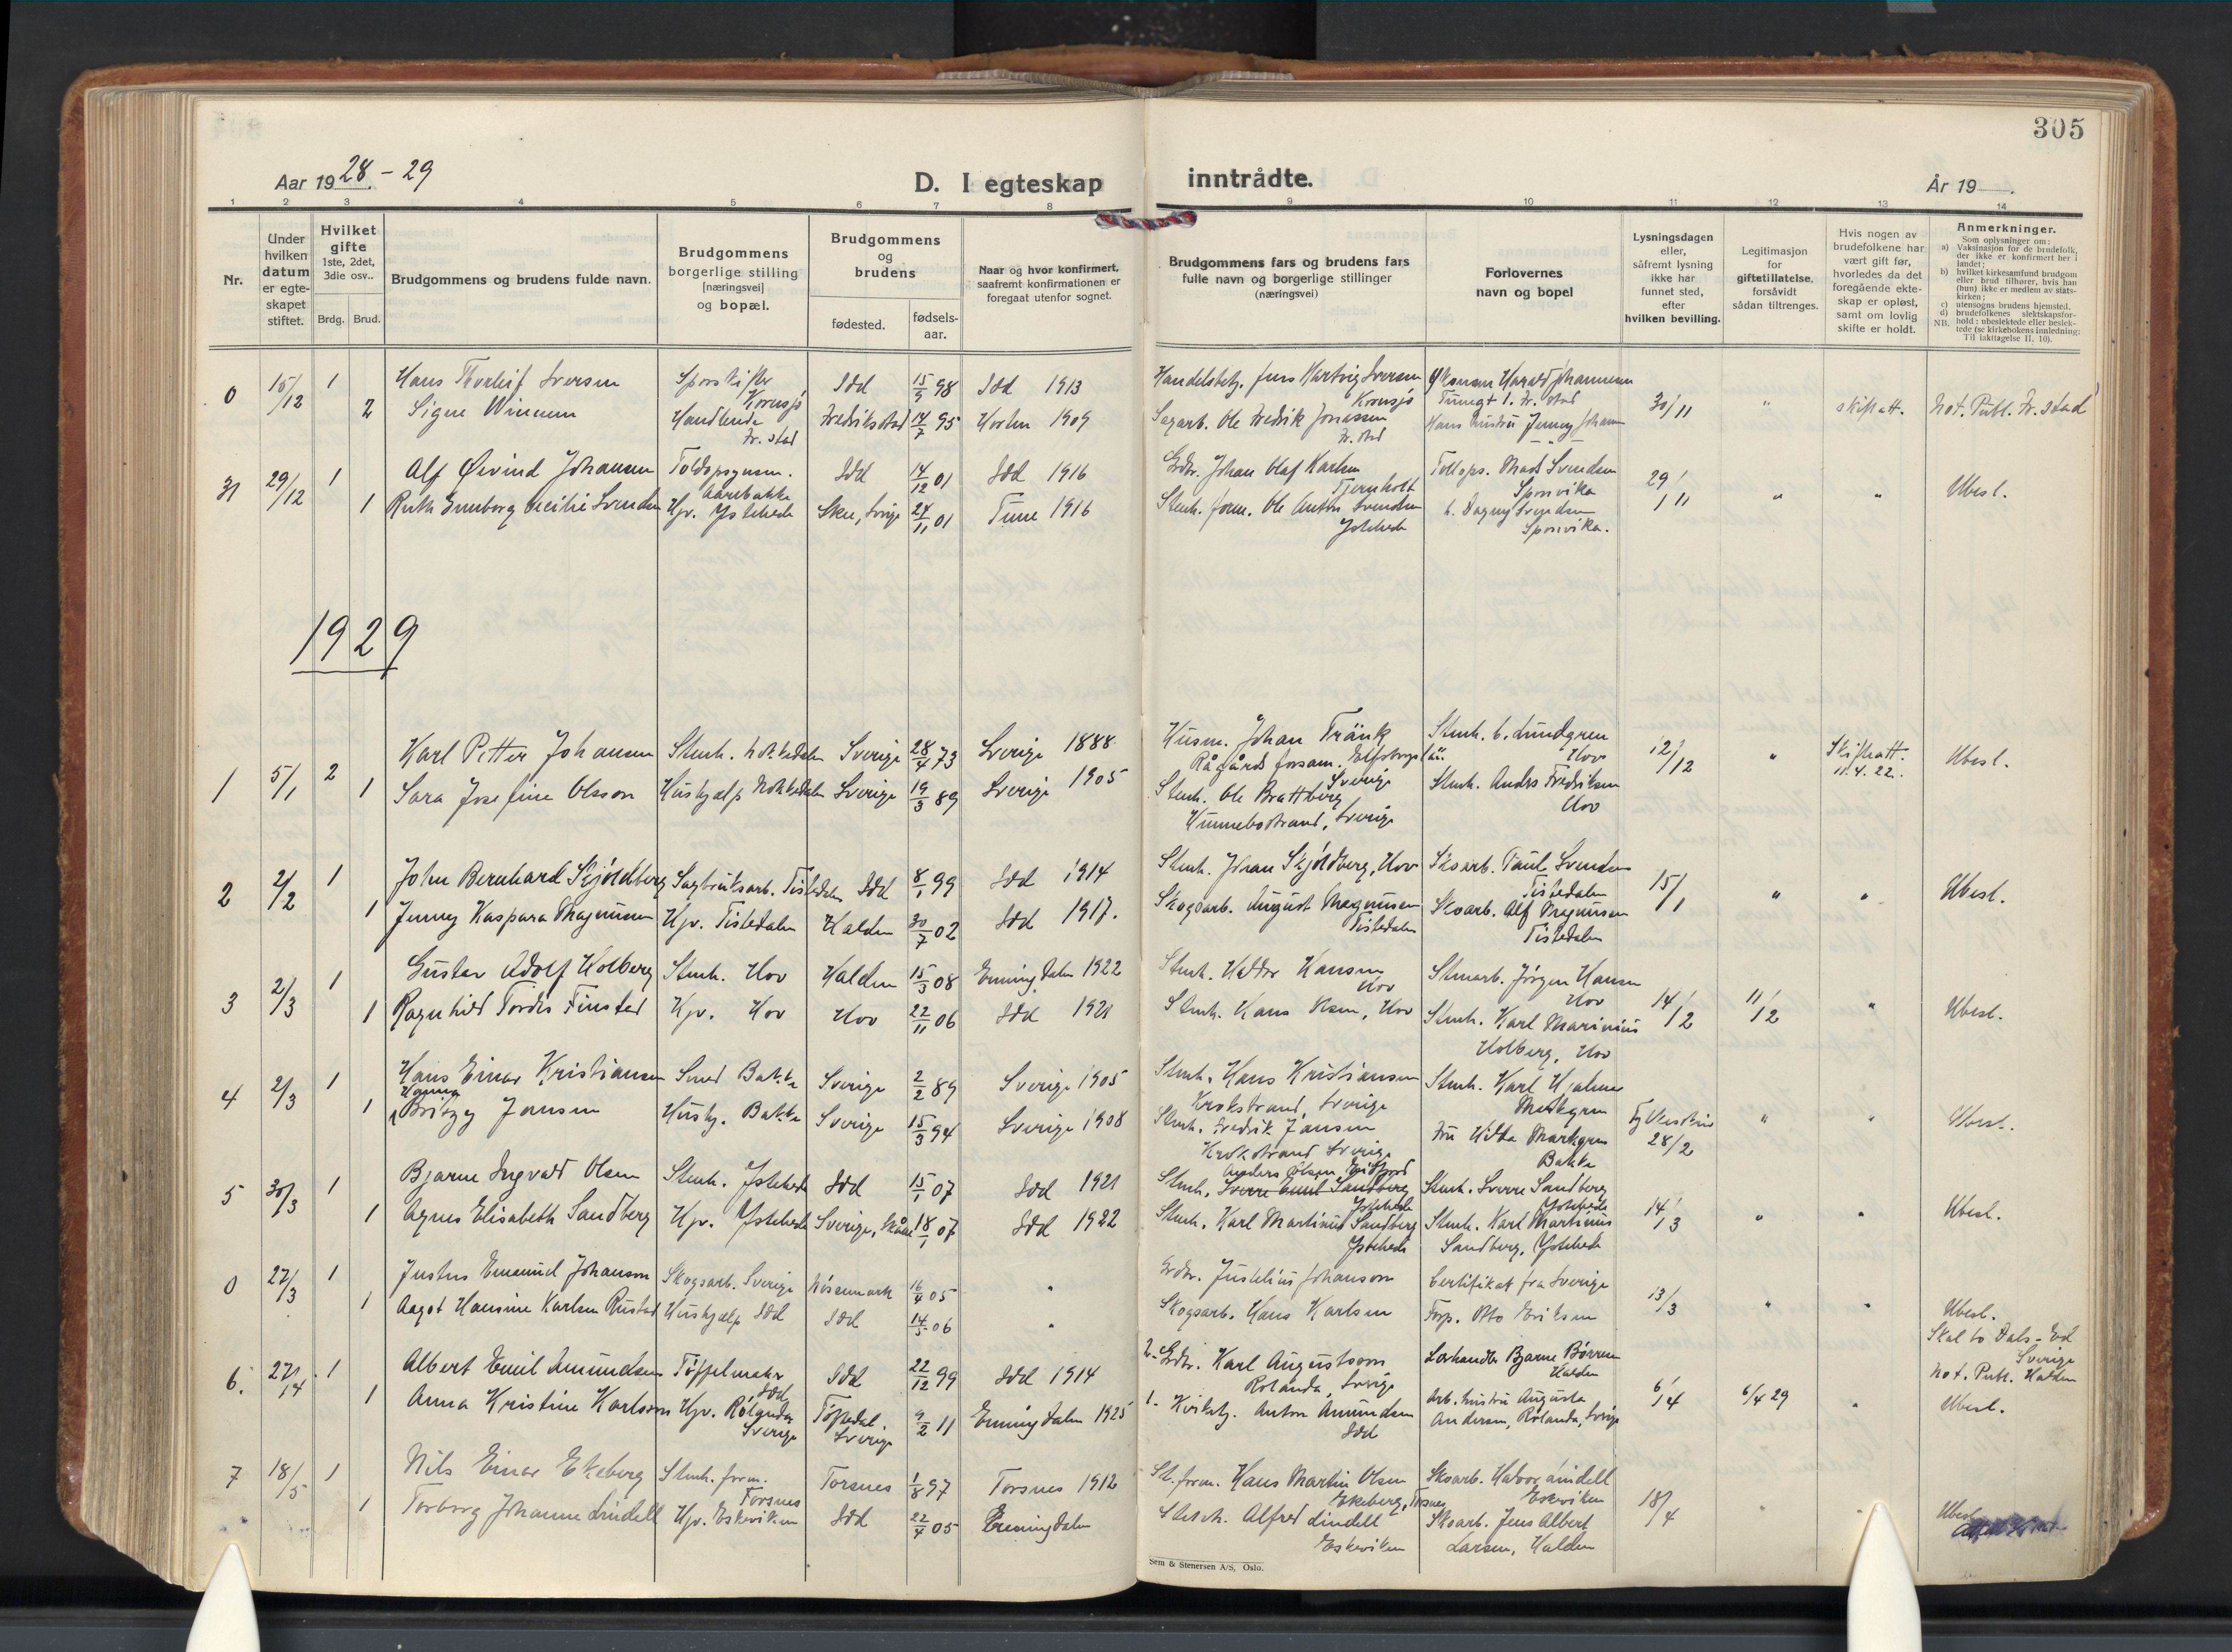 305
Aar 1928-29
D. I egteskap
inntrådte.
År 19
1 2 3 4 5 6 7 8 9 10 11 12 13 14
Nr.
Under hvilken datum er egteskapet stiftet.
Hvilket gifte 1ste, 2det, 3die osv..
Brdg. Brud.
Brudgommens og brudens fulde navn.
Brudgommens borgerlige stilling [næringsvei] og bopæl.
Brudgommens og brudens
fødested.
fødsels-aar.
Naar og hvor konfirmert, saafremt konfirmationen er foregaat utenfor sognet.
Brudgommens fars og brudens fars fulle navn og borgerlige stillinger (næringsvei)
Forlovernes navn og bopel
Lysningsdagen eller, såfremt lysning ikke har funnet sted, efter hvilken bevilling.
Legitimasjon for giftetillatelse, forsåvidt sådan tiltrenges.
Hvis nogen av brudefolkene har vært gift før, hvorledes da det foregående ekteskap er opløst, samt om lovlig skifte er holdt.
Anmerkninger.
Som oplysninger om:
a) Vaksinasjon for de brudefolk, der ikke er konfirmert her i landet;
b) hvilket kirkesamfund brudgom eller brud tilhører, hvis han (hun) ikke er medlem av statskirken;
c) utensogns brudens hjemsted.
d) brudefolkenes slektskapsforhold: ubeslektede eller beslektede (se kirkebokens innledning:
NB. Til iakttagelse II. 10).
0 15/12 1 Hans Thorleif Iversen Sporskifter Kornsjø Idd 15/9 98 Idd 1913 Handelsbetj. Jens Hartvig Iversen Kornsjø
2 Signe Winnem Handlende Fr. stad Fredrikstad 14/7 95 Horten 1909 Sagarb. Ole Fredrik Jonassen Fr. stad Hans hustru Jenny 30/11 " skifteatt. Not. Publ. Fr. stad
31 29/12 1 Alf Øivind Johansen Toldopsynsm. Aarebakke Idd 14/12 01 Idd 1916 Grdbr. Johan Olaf Karlsen Tjernholt Tollops. Mads Svendsen Sponvika 29/11 " " Ubesl.
1 Ruth Cecilie Svendsen Hjv. Ystehede Skee, Sverige 24/11 01 Tune 1916 Stenh. form. Ole Anton Svendsen Ystehede Dagny Svendsen Sponvika.
1929
1 5/1 2 Karl Petter Johansen Stenh. Sverige 28/4 73 Sverige 1888 Husm. Johan Fränk Rågårds forsam. Elfsborgs län. Sverige Stenh. C. Lundgren Hov 12/12 " Skifteatt. 11.4.22. Ubesl.
1 Sara Josefine Olsson Hushjælp Sverige 19/3 89 Sverige 1905 Stenh. Ole Brattberg Hunnebostrand, Sverige Stenh. Anders Fredriksen Hov
2 2/2 1 John Bernhard Skjöldberg Sagbruksarb. Tistedalen Idd 8/1 99 Idd 1914 Stenh. Johan Skjöldberg, Hov Skoarb. Paul Svendsen Tistedalen 15/1 " " Ubesl.
1 Jenny Kaspara Magnussen Hjv. Tistedalen Halden 30/7 02 Idd 1917. Skogsarb. August Magnussen Tistedalen Skoarb. Alf Magnussen Tistedalen
3 2/3 1 Gustav Adolf Holberg Stenh. Hov Halden 15/3 08 Enningdalen 1922 Stenh. Haldor Hansen Hov Stenarb. Jörgen Hansen Hov 14/2 11/2 " Ubesl.
1 Ragnhild Tordis Finstad Hjv. Hov Hov 22/11 06 Idd 1921 Stenh. Hans Olsen, Hov Stenh. Karl Marinius Holberg, Hov
4 2/3 1 Hans Einar Kristiansen Smed Bakke Sverige 2/2 89 Sverige 1905 Stenh. Hans Kristiansen Krokstrand, Sverige Stenh. Karl Hjalmar Markgren " " Ubesl.
1 Hanna Jansen Hushj. Bakke Sverige 15/3 94 Sverige 1908 Stenh. Fredrik Jansen Krokstrand Sverige Fru Hilda Markgren Bakke 28/2
5 30/3 1 Bjarne Ingvald Olsen Stenh. Ystehede Idd 15/1 07 Idd 1921 Stenh. Anders Olsen Sverre Emil Sandberg Ystehede Stenh. Sverre Sandberg Ystehede 14/3 " " Ubesl.
1 Agnes Elisabeth Sandberg Hjv. Ystehede Sverige, Skåne 18/1 07 Idd 1922 Stenh. Karl Martinius Sandberg Ystehede Stenh. Karl Martinius Sandberg, Ystehede
0 27/3 1 Justus Emanuel Johanson Skogsarb. Sverige Nösemark 16/4 05 " Grdbr. Justelius Johanson Certifikat fra Sverige 13/3 " " Ubesl. Skal bo Dals-Ed Sverige Not. Publ. Halden
1 Aagot Hansine Karlsen Rustad Hushjælp Idd Idd 14/5 06 " Skogsarb. Hans Karlsen Forp. Otto Eriksen
6. 27/4 1 Albert Emil Amundsen Töffelmaker Idd Idd 22/12 99 Idd 1914 2. Grdbr. Karl Augustsson Rølanda, Sverige Bjarne Børresen Halden 6/4 6/4 29 " Ubesl.
1 Anna Kristine Karlsson Hjv. Rølanda Sverige Töftedal. Sverige 9/2 11 Enningdalen 1925 1. Anton Amundsen Idd Arb. hustru Augusta Andersen, Rølanda, Sverige
7 18/5 1 Nils Einar Ekeberg Stenh. form. Torsnes Torsnes 1/8 97 Torsnes 1912 St. form. Hans Martin Olsen Ekeberg, Torsnes Skoarb. Halvor Lindell Eskeviken 18/4 " " Ubesl.
1 Torborg Johanne Lindell Hjv. Eskeviken Idd 22/4 05 Enningdalen Alfred Lindell Eskeviken Skoarb. Jens Albert Larsen, Halden
Sem & Stenersen A/S, Oslo.